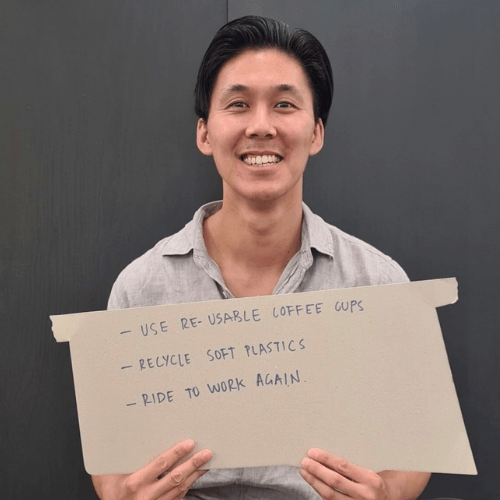 - USE RE-USABLE COFFEE CUPS
- RECYCLE SOFT PLASTICS
- RIDE TO WORK AGAIN.